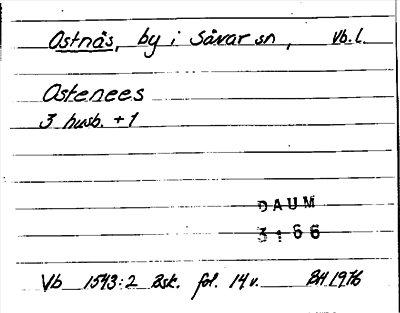 Ostnås, by i Sävar sn, Vb.l.
Ostenees
3 husb. + 1
DAUM
3:66
Vb 1543:2 Bsk. fol. 14 v. BH 1976